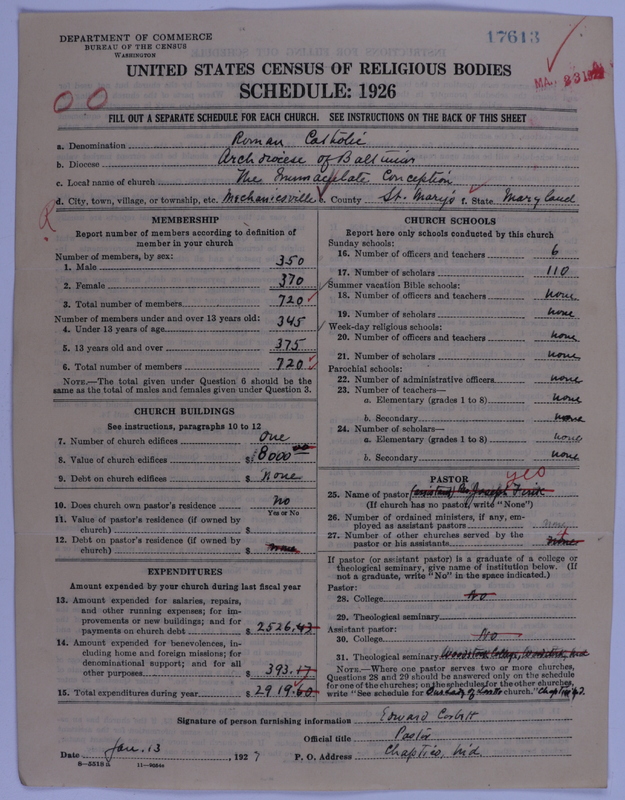 DEPARTMENT OF COMMERCE
BUREAU OF THE CENSUS
WASHINGTON
17613
UNITED STATES CENSUS OF RELIGIOUS BODIES
SCHEDULE: 1926
FILL OUT A SEPARATE SCHEDULE FOR EACH CHURCH. SEE INSTRUCTIONS ON THE BACK OF THIS SHEET
a. Denomination Roman Catholic
b. Diocese Archdiocese of Baltimore
c. Local name of church The Immaculate Conception
d. City, town, village, or township, etc. Mechanicsville e. County St. Mary's f. State Maryland
MEMBERSHIP
Report number of members according to definition of
member in your church
Number of members, by sex:
1. Male 350
2. Female 370
3. Total number of members 720
Number of members under and over 13 years old:
4. Under 13 years of age 345
5. 13 years old and over 375
6. Total number of members 720
NOTE.—The total given under Question 6 should be the
same as the total of males and females given under Question 3.
CHURCH BUILDINGS
See instructions, paragraphs 10 to 12
7. Number of church edifices One
8. Value of church edifices $ 8000 00
9. Debt on church edifices $ None
10. Does church own pastor's residence No
Yes or No
11. Value of pastor's residence (if owned by
church) $
12. Debt on pastor's residence (if owned by
church) $ None
EXPENDITURES
Amount expended by your church during last fiscal year
13. Amount expended for salaries, repairs,
and other running expenses; for im-
provements or new buildings; and for
payments on church debt $ 2526.43
14. Amount expended for benevolences, in-
cluding home and foreign missions; for
denominational support; and for all
other purposes $ 393.17
15. Total expenditures during year $ 2919.60
CHURCH SCHOOLS
Report here only schools conducted by this church
Sunday schools:
16. Number of officers and teachers 6
17. Number of scholars 110
Summer vacation Bible schools:
18. Number of officers and teachers none
19. Number of scholars none
Week-day religious schools:
20. Number of officers and teachers none
21. Number of scholars none
Parochial schools:
22. Number of administrative officers none
23. Number of teachers—
a. Elementary (grades 1 to 8) none
b. Secondary none
24. Number of scholars—
a. Elementary (grades 1 to 8) none
b. Secondary none
PASTOR
yes
25. Name of pastor (assistant) Joseph
(If church has no pastor, write "None")
26. Number of ordained ministers, if any, em-
ployed as assistant pastors none
27. Number of other churches served by the
pastor or his assistants none
If pastor (or assistant pastor) is a graduate of a college or
theological seminary, give name of institution below. (If
not a graduate, write "No" in the space indicated.)
Pastor:
28. College No
29. Theological seminary
Assistant pastor:
30. College No
31. Theological seminary Woodstock College, Woodstock, Md
NOTE.—Where one pastor serves two or more churches,
Questions 28 and 29 should be answered only on the schedule
for one of the churches; on the schedules for the other churches,
write "See schedule for Our Lady of church." Chaptico
Signature of person furnishing information Edward Corbitt
Official title Pastor
Date Jan. 13, 1927 P. O. Address Chaptico, Md.
8—5518 a